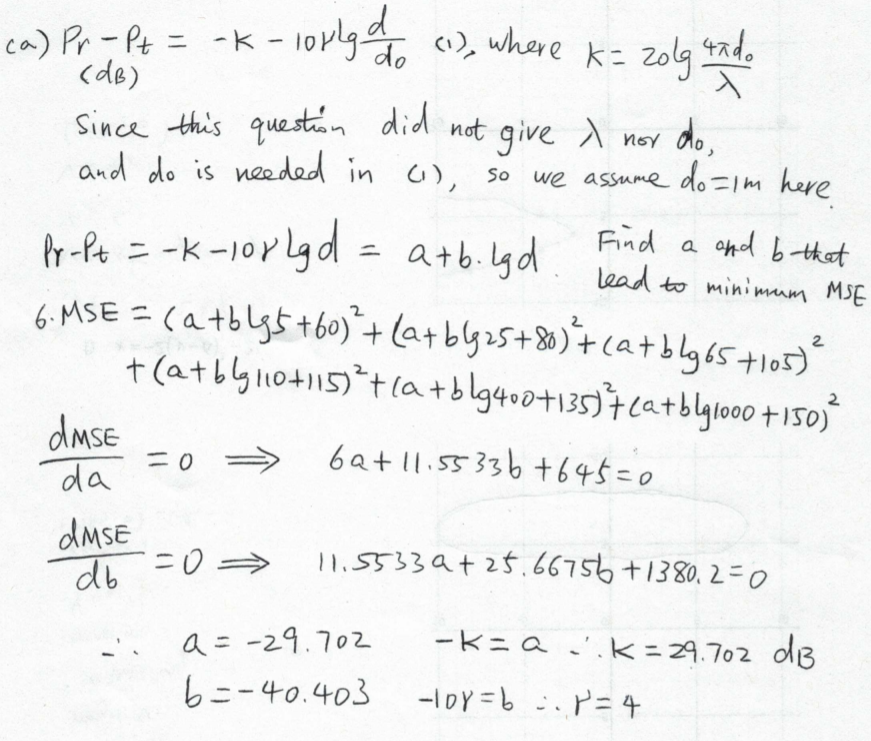 (a) Pr - Pt = -K - 10γlg d/do (1), where K = 20lg 4πdo/λ
(dB)
Since this question did not give λ nor do,
and do is needed in (1), so we assume do=1m here.
Pr-Pt = -K-10γlgd = a+b.lgd. Find a and b that
lead to minimum MSE
6.MSE = (a+blg5+60)²+(a+blg25+80)²+(a+blg65+105)²
+(a+blg110+115)²+(a+blg400+135)²+(a+blg1000+150)²
dMSE/da = 0 ⟹ 6a+11.5533b+645=0
dMSE/db = 0 ⟹ 11.5533a+25.6675b+1380.2=0
∴ a = -29.702 -K=a ∴ K=29.702 dB
b = -40.403 -10γ=b ∴ γ=4